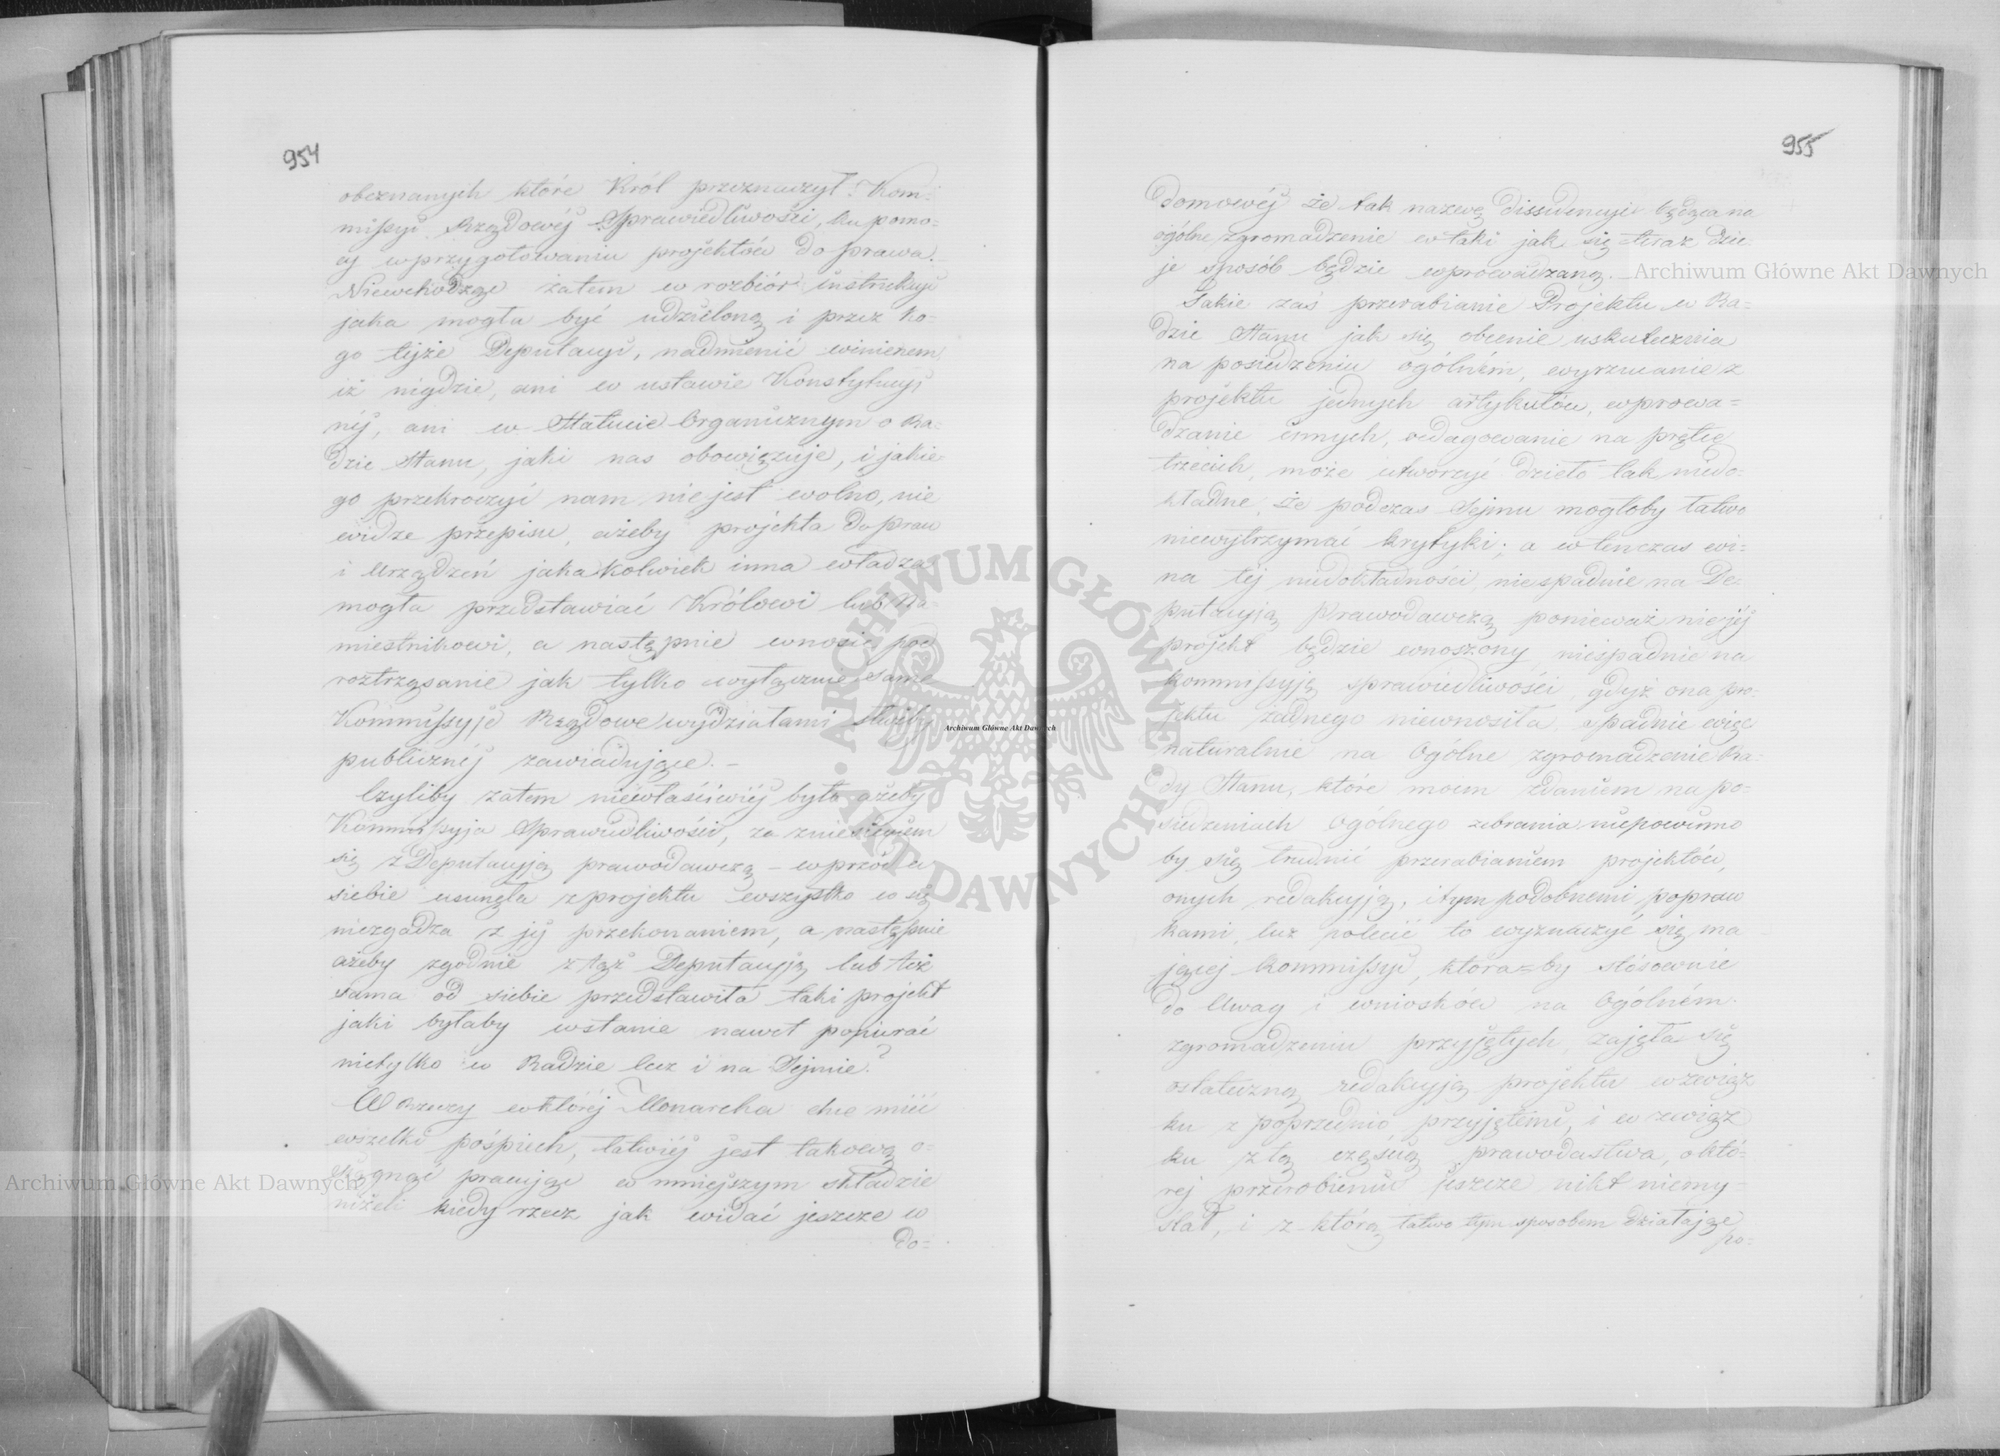 954
obeznanych które Król przeznaczył Kom-
missyi Rządowéj Sprawiedliwości, ku pomo-
cy w przygotowaniu projektów do prawa.
Niewchodząc zatem w rozbiór instrukcyi
jaka mogła być udzieloną i przez ko-
go téjże Deputacyi, nadmienić winienem
iż nigdzie, ani w ustawie Konstytucyj
néj, ani w Statucie Organicznym o Ra-
dzie Stanu, jaki nas obowiązuje, i jakie-
go przekroczyć nam niejest wolno, nie
widzę przepisu, ażeby projekta do praw
i Urządzeń jakakolwiek inna władza
mogła przedstawiać Królowi lub Na-
miestnikowi, a następnie wnosić pod
roztrząsanie jak tylko wyłącznie same
Kommissyje Rządowe wydziałami służby
publicznéj zawiadujące.-
Czyliby zatem niewłaściwiéj była ażeby
Kommissyja Sprawiedliwości, za zniesieniem
się z Deputacyją prawodawczą - wprzód u
siebie usunęła z projektu wszystko co się
niezgadza z jéj przekonaniem, a następnie
ażeby zgodnie z tąż Deputacyją lub też
sama od siebie przedstawiła taki projekt
jaki byłaby wstanie nawet popierać
nietylko w Radzie lecz i na Sejmie?
W Rzeczy w któréj Monarcha chce mieć
wszelki pośpiech, łatwiéj jest takową o-
siągnąć pracując w mniejszym składzie
niżeli kiedy rzecz jak widać jeszcze w
do-
955
domowéj że tak nazwę dissidencyi będąca na
ogólne zgromadzenie w taki jak się teraz dzie-
je sposób będzie wprowadzaną.
Takie zaś przerabianie Projektu w Ra-
dzie Stanu jak się obecnie uskutecznia
na posiedzeniu ogólném, wyrzucanie z
projektu jednych artykułów, wprowa-
dzanie innych, redagowanie na prętce
trzecich, może utworzyć dzieło tak niedo-
kładne, że podczas Sejmu mogłoby łatwo
niewytrzymać krytyki; a wtenczas wi-
na téj niedokładności niespadnie na De-
putacyją Prawodawczą ponieważ nie jéj
projekt będzie wnoszony, niespadnie na
kommissyją sprawiedliwości, gdyż ona pro-
jektu żadnego niewnosiła, spadnie więc
naturalnie na Ogólne zgromadzenie Ra-
dy Stanu, które moim zdaniem na po-
siedzeniach Ogólnego zebrania niepowinno
by się trudnić przerabianiem projektów,
onych redakcyją, i tym podobnemi popraw
kami, lecz polecić to wyznaczyć się ma
jącej Kommissyi, która=by stósownie
do Uwag i wniosków na Ogólném
zgromadzeniu przyjętych, zajęła się
ostateczną redakcyją projektu w związ
ku z poprzednio przyjętemi, i w związ
ku z tą częścią prawodastwa, o któ-
rej przerobieniu jeszcze nikt niemy-
ślał, i z którą łatwo tym sposobem działając
po-
Archiwum Główne Akt Dawnych
Archiwum Główne Akt Dawnych
Archiwum Główne Akt Dawnych
ARCHIWUM GŁÓWNE AKT DAWNYCH